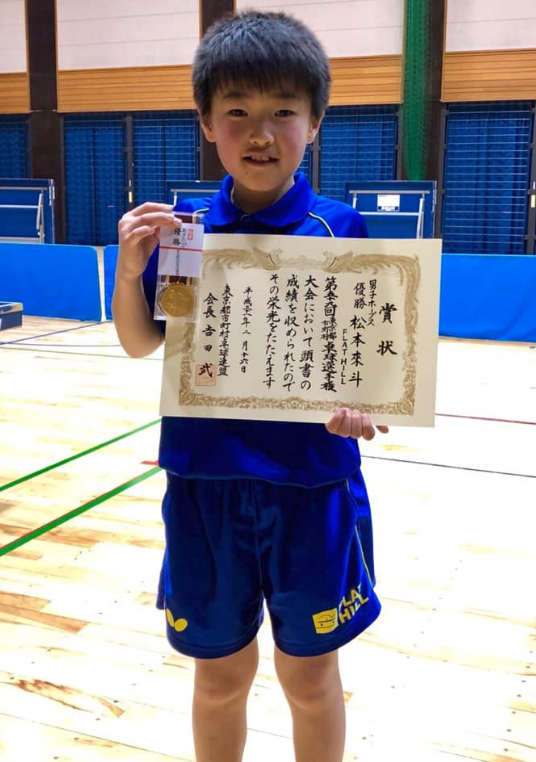 賞状
男子ホープス
優勝 松本來斗
FLAT HILL
卓球選手権
大会において頭書の
成績を収められたので
その栄光をたたえます
平成三十一年一月十六日
東京都市町村卓球連盟
会長 吉田
優勝
FLAT
HILL